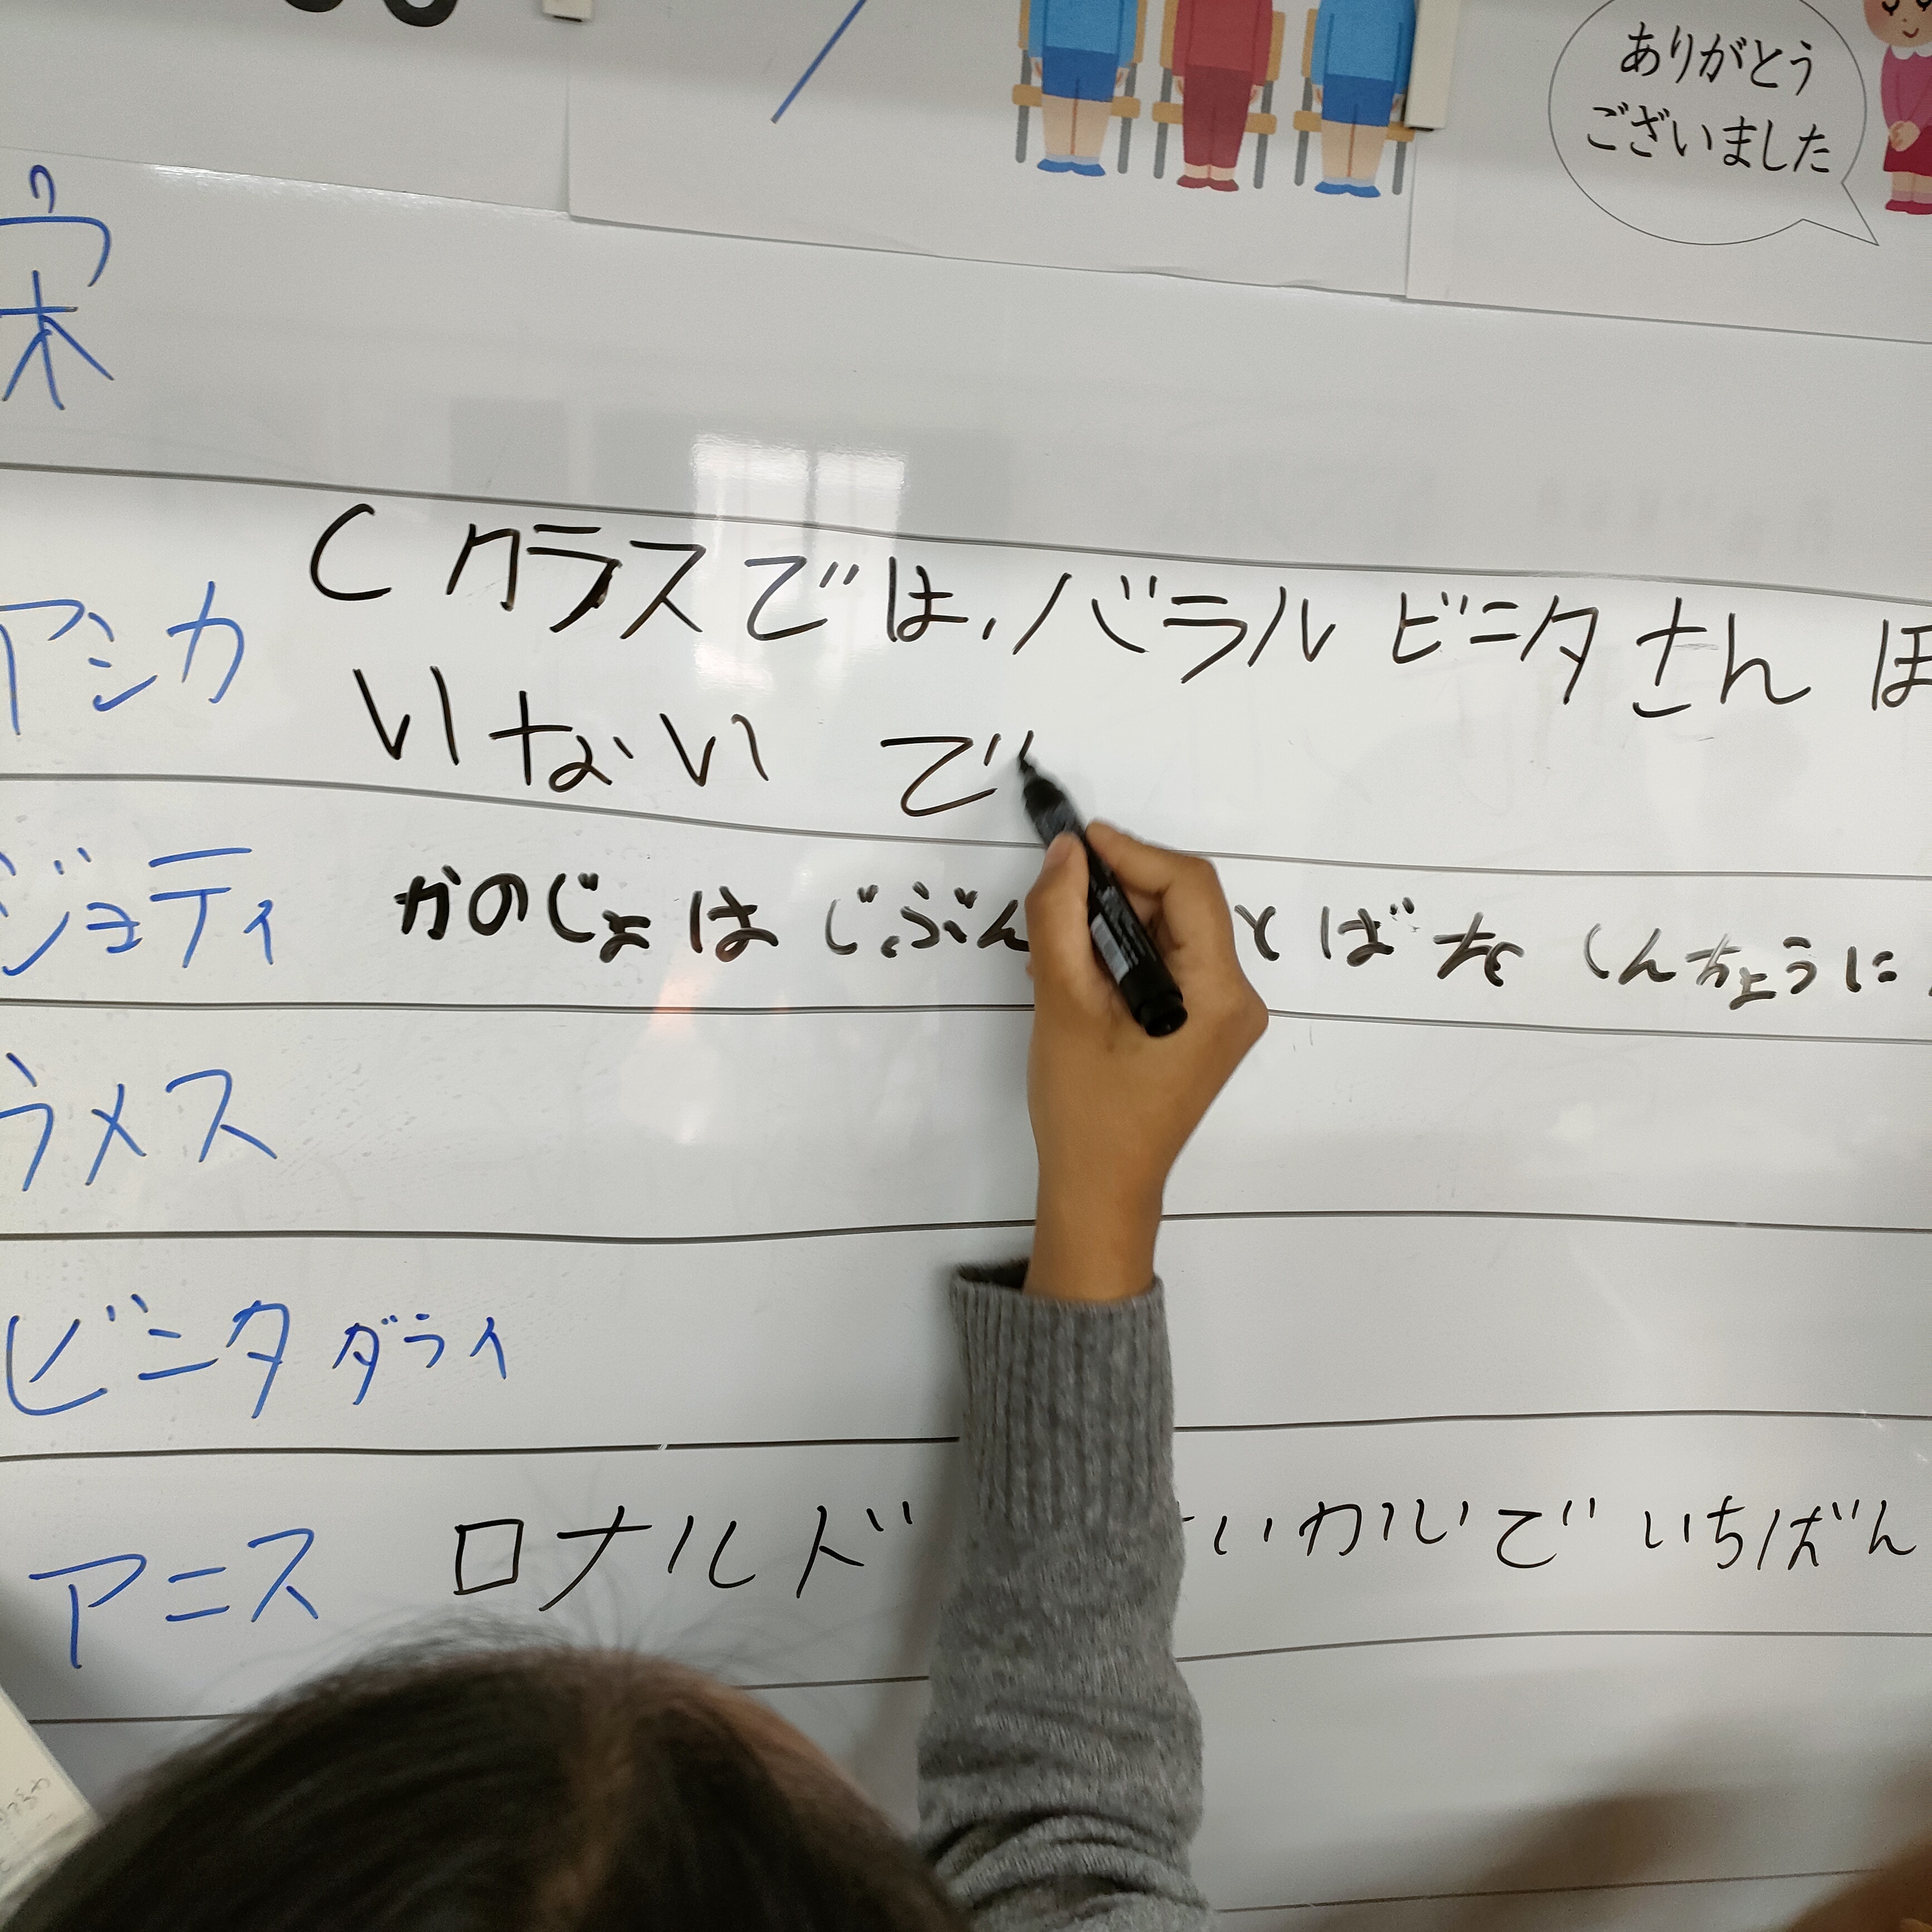 ありがとう
ございました
宋
アシカ
Cクラスでは、バラル ビニタさん ほ
いない で
ジョティ
かのじょは じぶん とばを しんちょうに
ラメス
ビニタ ダライ
アニス
ロナルド いかいで いちばん